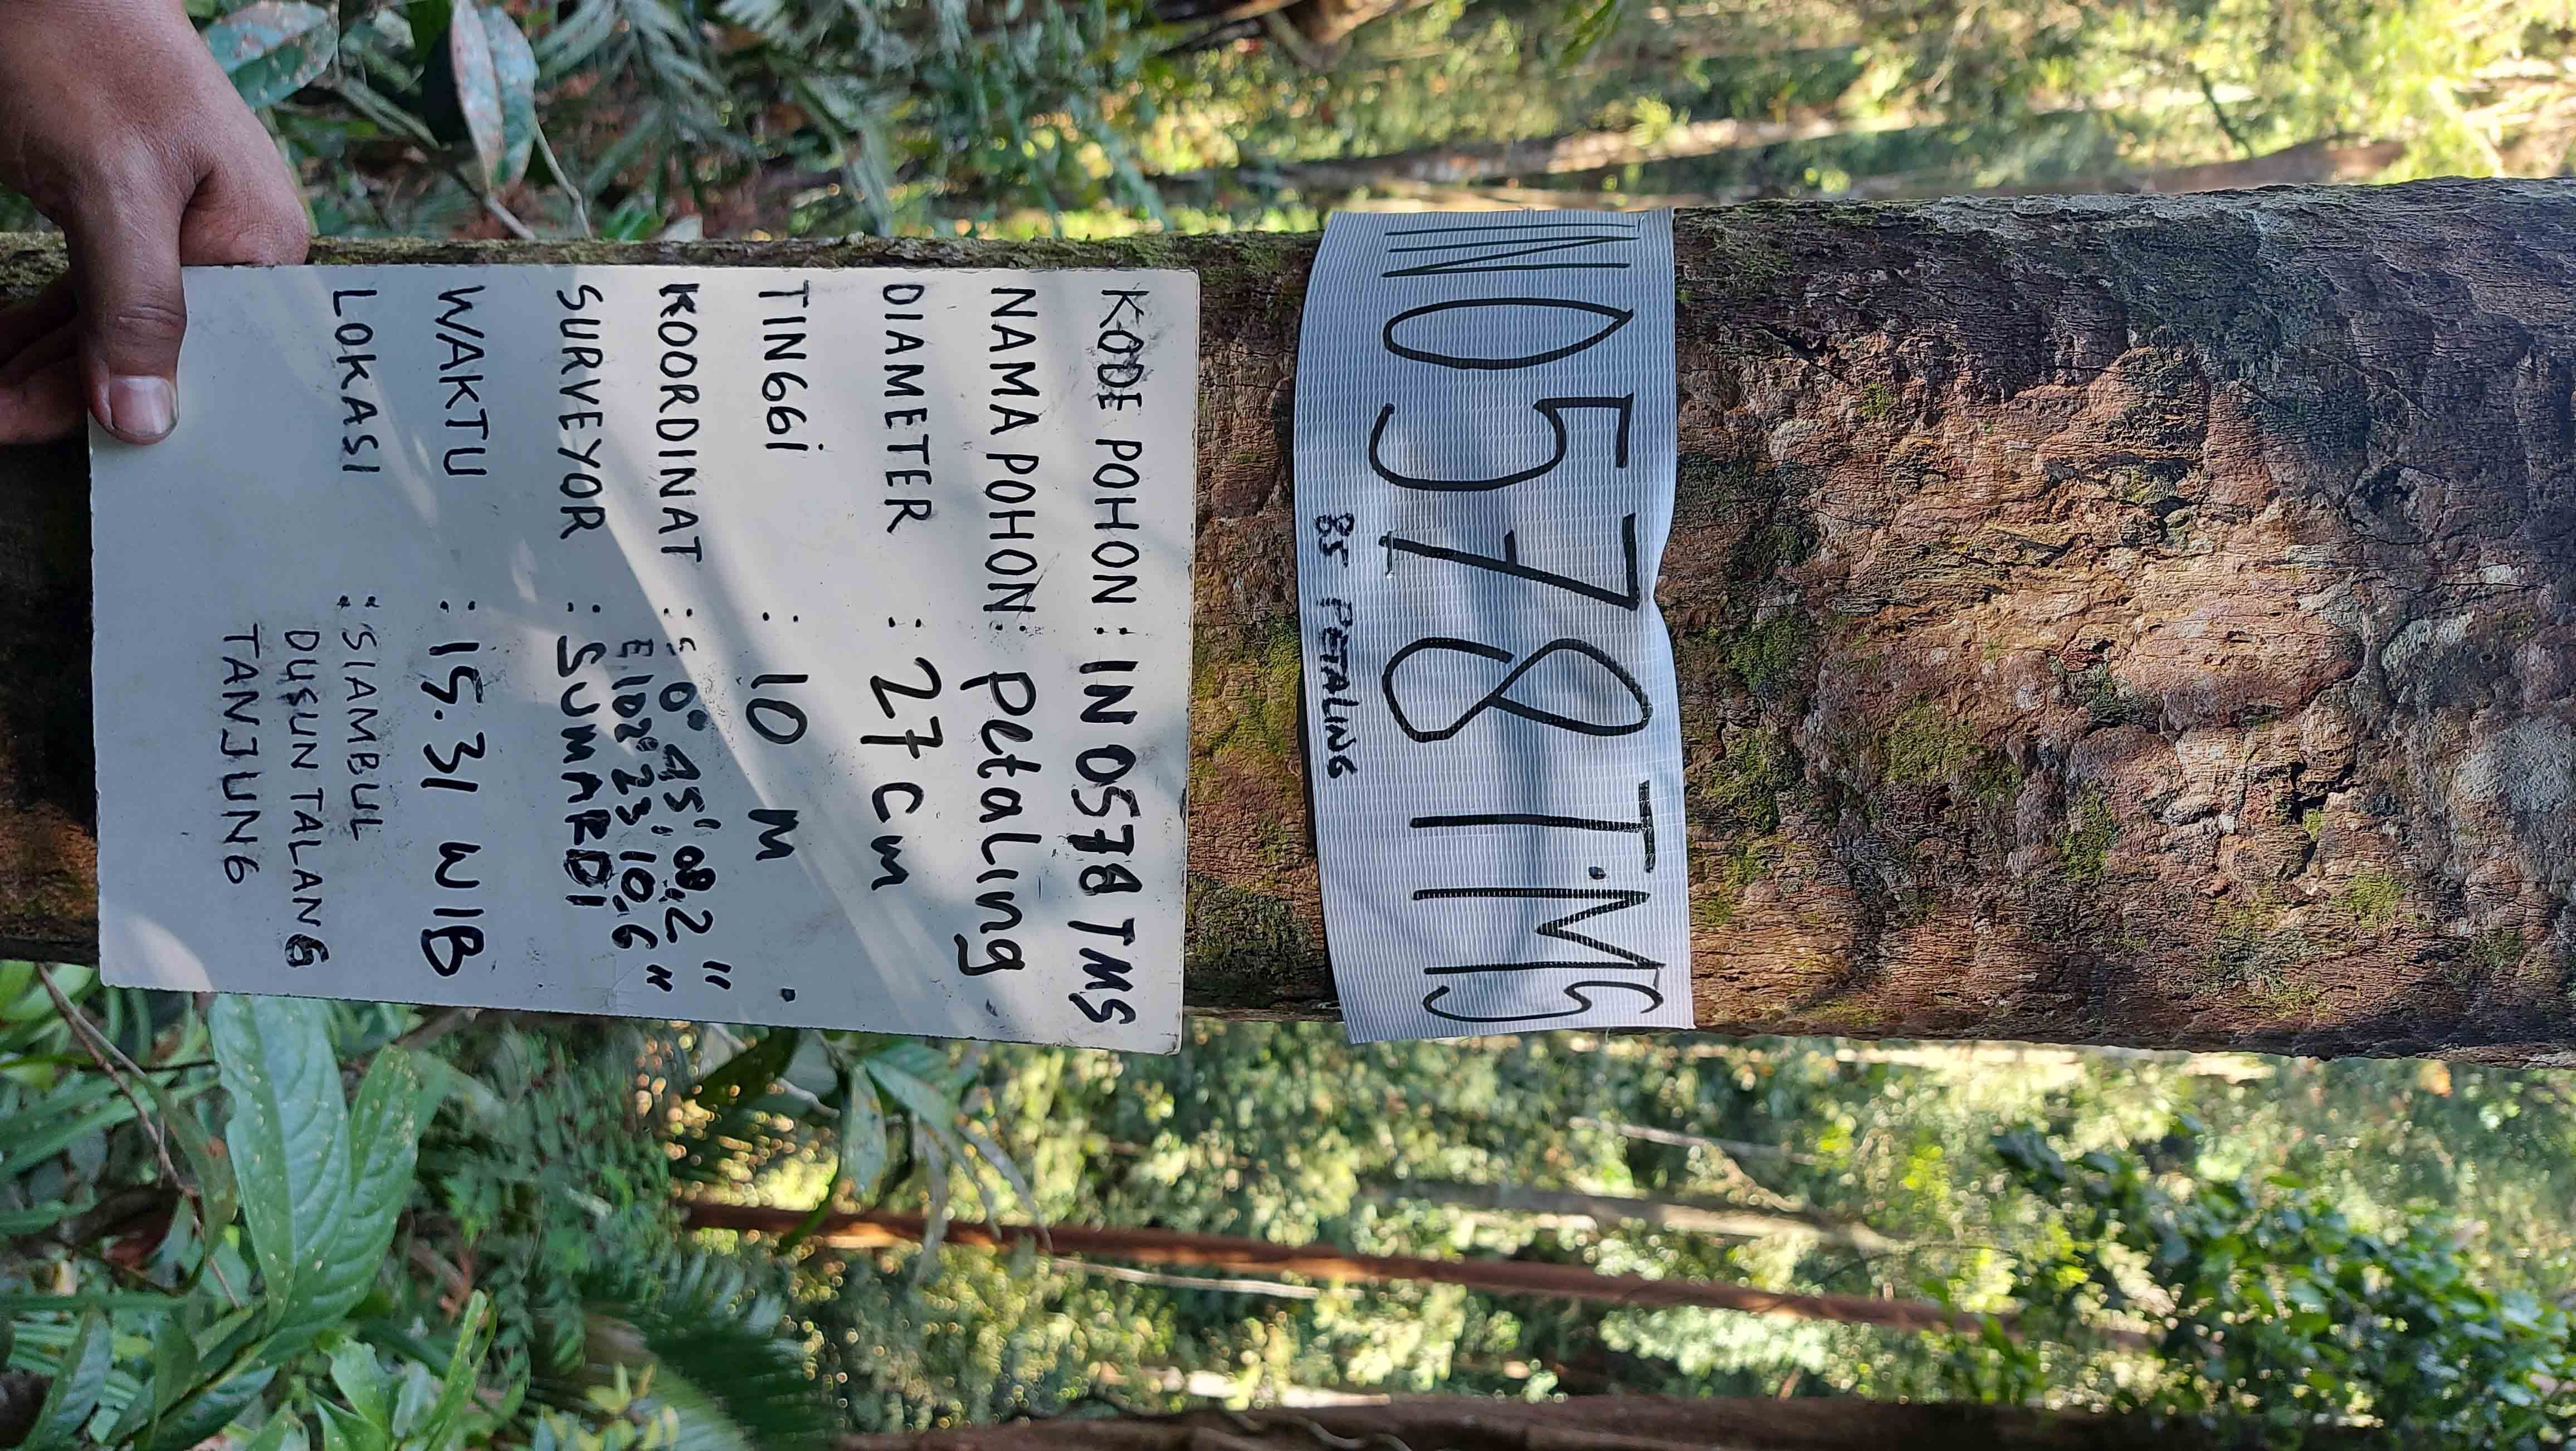 IN0578T.MS
85 PETALING
KODE POHON : IN 0578 TMS
NAMA POHON : petaling
DIAMETER : 27 cm
TINGGi : 10 M
KOORDINAT : S 0° 45' 08,2"
E 102° 23' 10,6"
SURVEYOR : SUMARDi
WAKTU : 15.31 WIB
LOKASI : SIAMBUL
DUSUN TALANG
TANJUNG